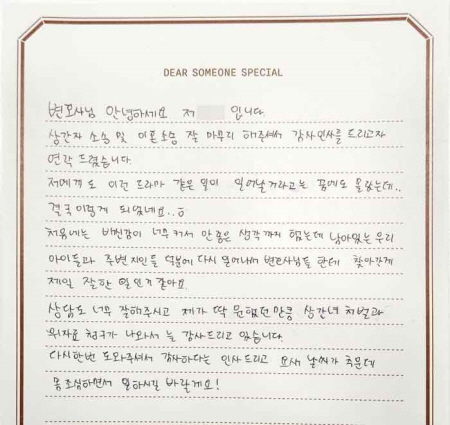 DEAR SOMEONE SPECIAL
변호사님 안녕하세요 저 입니다
상간자 소송 및 이혼소송 잘 마무리 해주셔서 감사인사를 드리고자
연락 드렸습니다
저에게도 이런 드라마 같은 일이 일어날거라고는 꿈에도 몰랐는데..
결국 이렇게 되었네요..ㅎ
처음에는 배신감이 너무 커서 안좋은 생각까지 했는데 남아있는 우리
아이들과 주변지인들 덕분에 다시 일어나서 변호사님들 한테 찾아간게
제일 잘한 일인거 같아요
상담도 너무 잘해주시고 제가 딱 원했던 만큼 상간녀 처벌과
위자료 청구가 나와서 늘 감사드리고 있습니다.
다시한번 도와주셔서 감사하다는 인사드리고 요새 날씨가 추운데
몸조심하면서 일하시길 바랄게요!